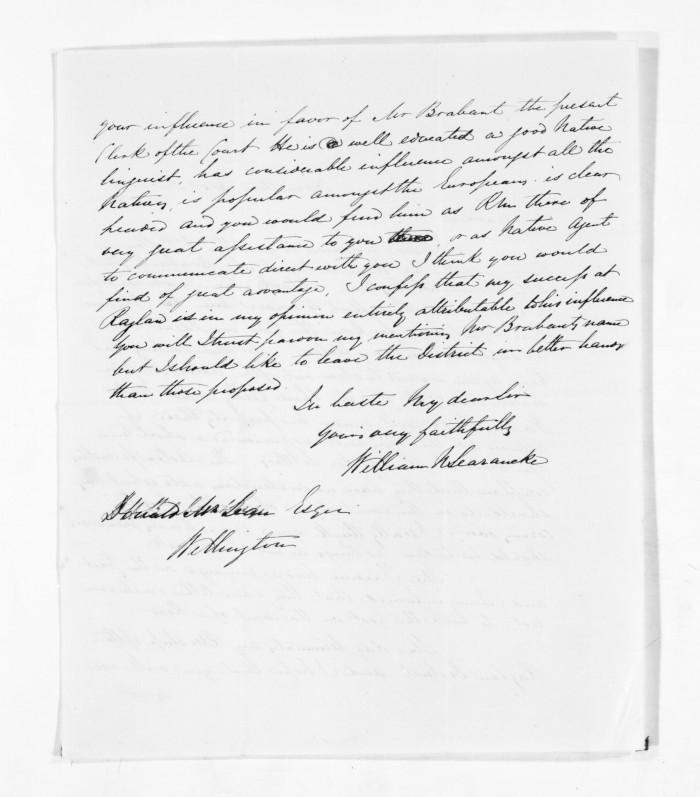 your influence in favor of Mr Brabant the present
Clerk of the Court He is a well educated a good Native
linguist, has considerable influence amongst all the
Natives, is popular amongst the Europeans. is clear
headed and you would find him as R M there of
very great assistance to you or as Native Agent
to communicate direct with you I think you would
find of great advantage, I confess that my success at
Raglan is in my opinion entirely attributable to his influence
You will I trust pardon my mentioning Mr Brabants name
but I should like to leave the District in better hands
than those proposed.
In haste My dear Sir
Yours very faithfully
William N Searancke
Donald McLean Esqr
Wellington